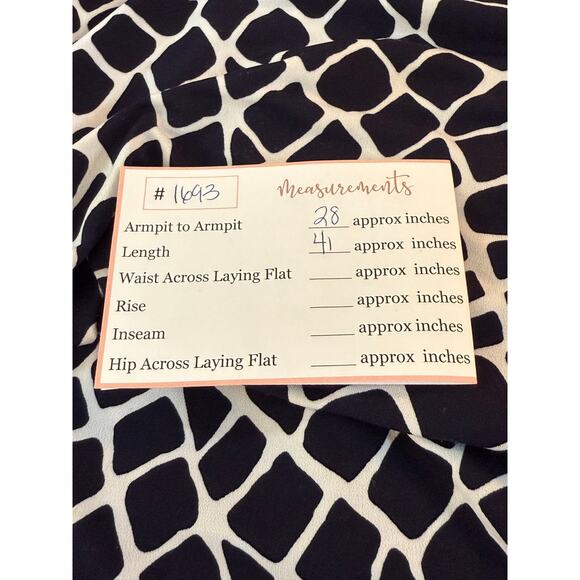 # 1693
Measurements
Armpit to Armpit 28 approx inches
Length 41 approx inches
Waist Across Laying Flat ____ approx inches
Rise ____ approx inches
Inseam ____ approx inches
Hip Across Laying Flat ____ approx inches